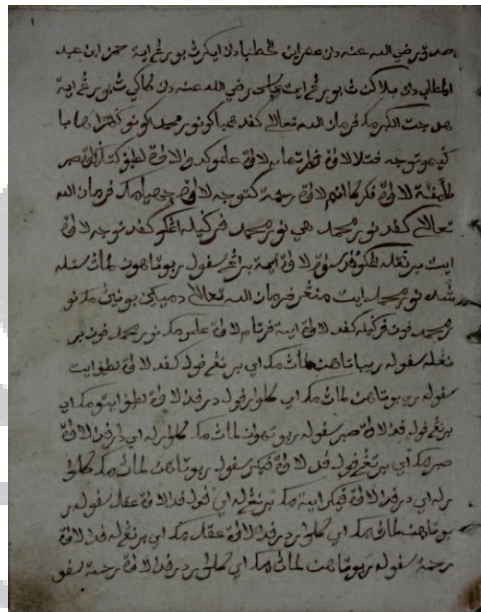 صديق رضي الله عنه دان عمر ابن الخطاب دان ايكرث بورغ اية حمز ابن عبد
المطلب دان بلاكڠ ث بورغ ايت عباس رضي الله عنه دان كاكي ث بورغ اية
مك فرمان الله تعالى كفد همباكو نور محمد اكو نوكرهاي با
كيمو توجه لاوة فرتمام لاوة علمو كدوا لاوة لطف كتيݢ لاوة صبر
لاوة فكر كانم لاوة رحمة كتوجه لاوة مك فرمان الله
تعالى كفد نور محمد هي نور محمد فركيله اڠكو كفد توجه لاوة
ايت برنڠله اڠكو لاوة ايمة برنڠ سفوله ريبو تاهون لمانث ستله
سده نور محمد ايت منڠر فرمان الله تعالى دميكين بونين مك نو
ر محمد فون فركيله كفد لاوة ايية فرتام لاوة علمو مك نور محمد فون بر
نڠله سفوله ريبو تاهن لمانث مك اي برنڠ فول كفد لاوة لطف ايت
سفوله ريبو تاهن لمانث مك اي كلوار فول درفد لاوة لطف ايت مك اي
برنڠ فول فد لاوة صبر سفوله ريبو تهون لمانث مك كلورله اي درفد لاوة
صبر مك اي برنڠ فول فد لاوة فيكر سفوله ريبو تاهن لمانث مك كلو
رله اي درفد لاوة فيكر ايية مك برنڠله اي فول فد لاوة عقل سفوله ر
يبو تاهن لمانث مك اي كلور درفد لاوة عقل مك اي برنڠله فد لاوة
رحمة سفوله ريبو تاهن لمانث مك اي كلور درفد لاوة رحمة سفو